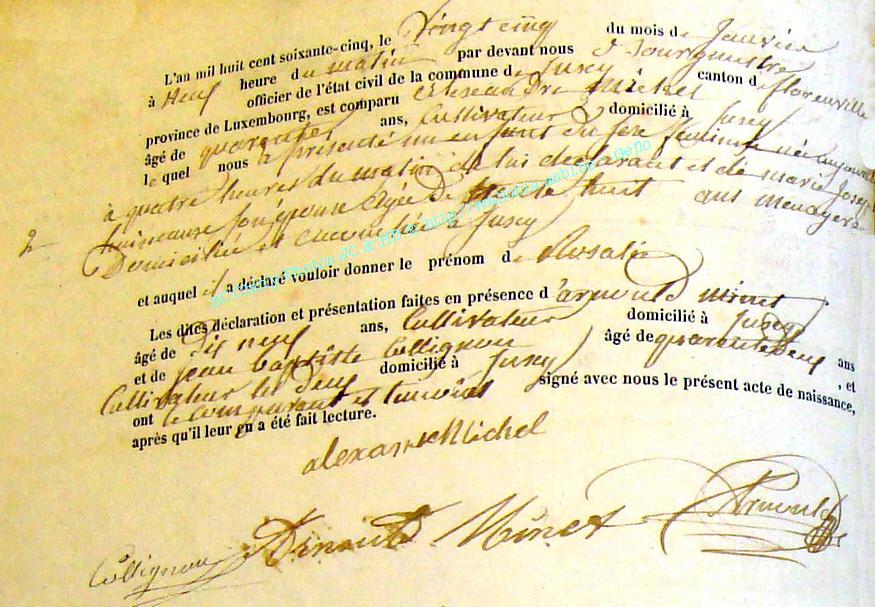 L'an mil huit cent soixante-cinq, le Vingt cinq du mois de Janvier
à neuf heure du matin par devant nous
officier de l'état civil de la commune de Jusey canton de florenville
province de Luxembourg, est comparu Alexandre Michel
âgé de quarante ans, Cultivateur domicilié à Jusey
le quel nous a présenté un enfant du sexe féminin né aujourd'hui
à quatre heures du matin de lui déclarant et de marie Joseph
2 son épouse agée de trente huit ans menagere
Domiciliée et a Jusey
et auquel il a déclaré vouloir donner le prénom de Rosalie
Les dites déclaration et présentation faites en présence d'arnould minet
âgé de dix neuf ans, Cultivateur domicilié à Jusey
et de jean baptiste Collignon âgé de quarante neuf ans
Cultivateur les deux domicilié à Jusey , et
ont le comparant et temoins signé avec nous le présent acte de naissance,
après qu'il leur en a été fait lecture.
alexandre Michel
Collignon Arnould Minet Arnould